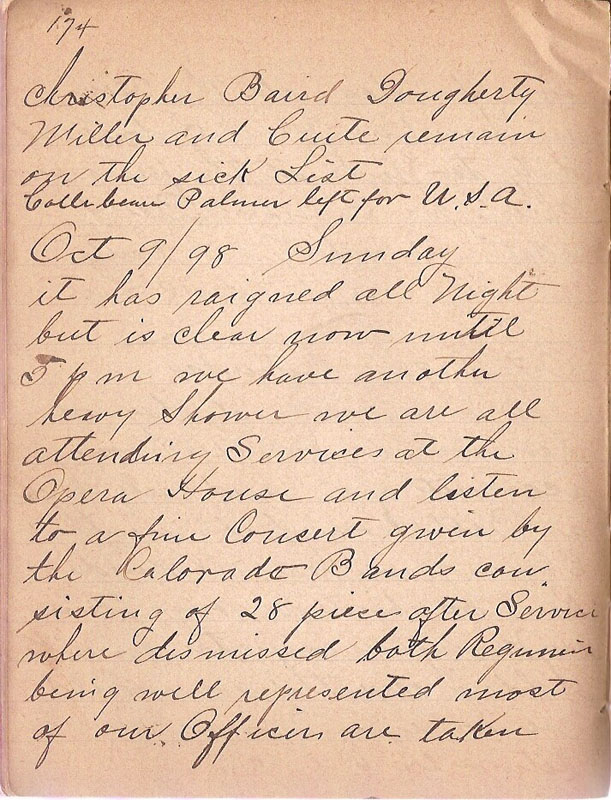 174
Christopher Baird Dougherty
Miller and Cuite remain
on the sick List
Palmer left for U.S.A.
Oct 9/98 Sunday
it has raigned all Night
but is clear now until
5 pm we have another
heavy Shower we are all
attending Services at the
Opera House and listen
to a fine Concert given by
the Colorado Bands con
sisting of 28 piece after Service
where dismissed both Regimen
being well represented most
of our Officers are taken